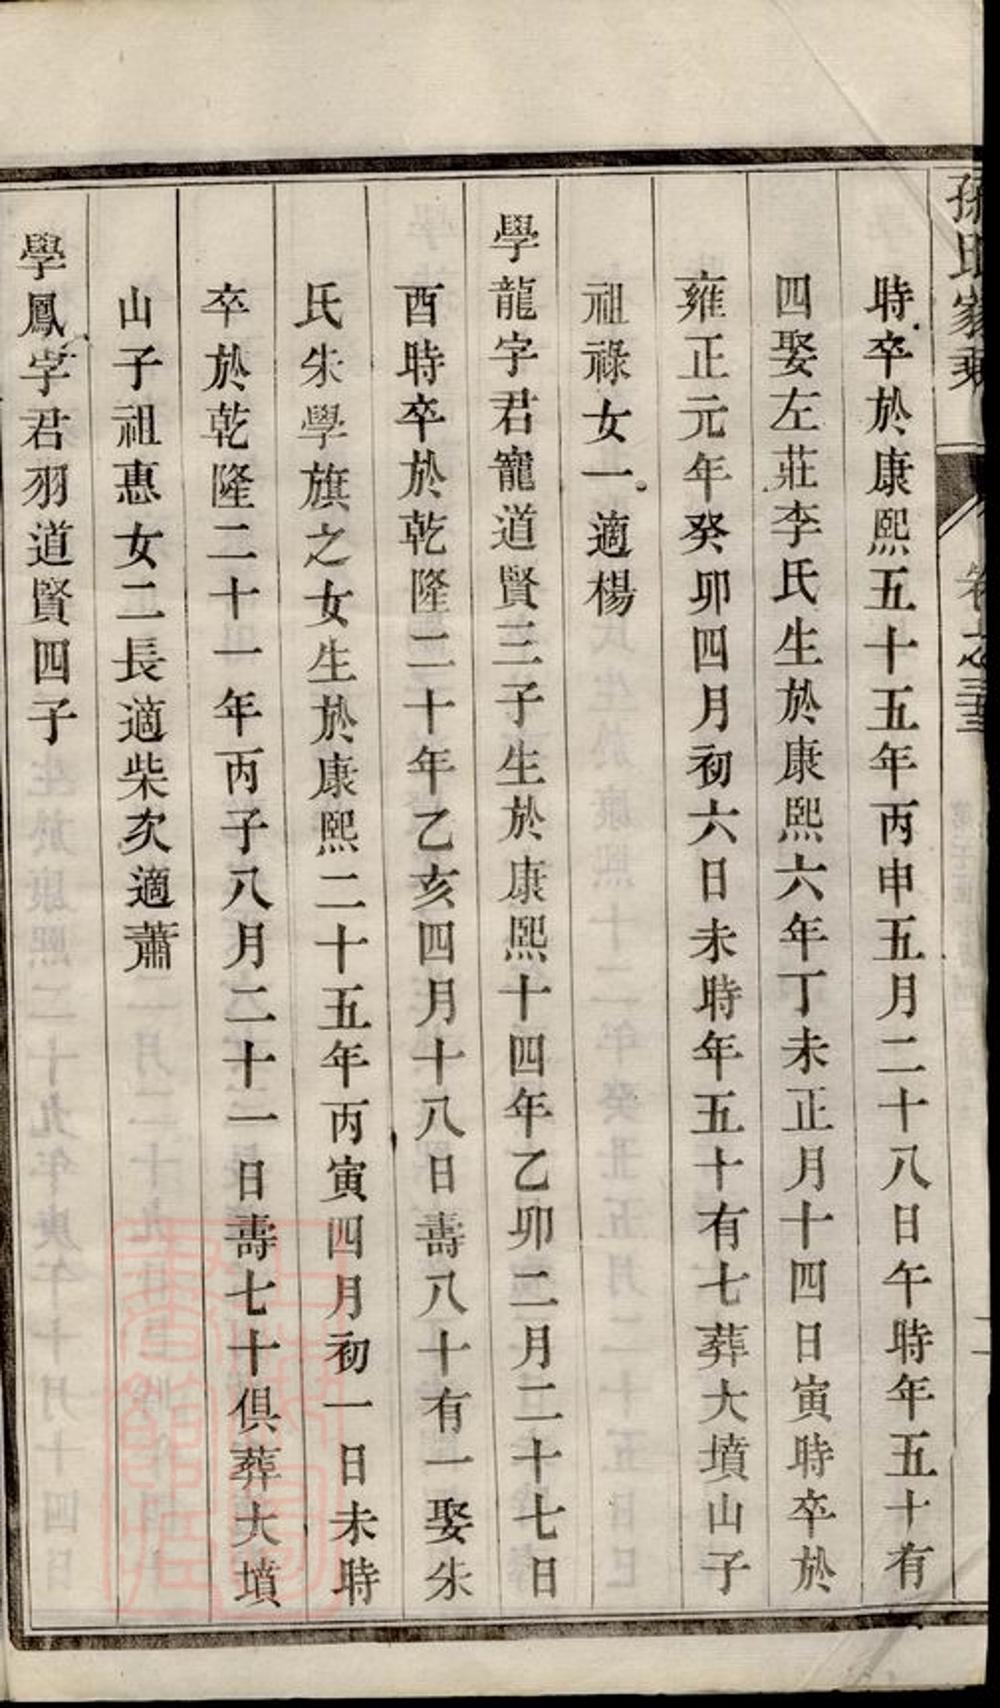 孫氏家乘
時卒於康熙五十五年丙申五月二十八日午時年五十有
四娶左莊李氏生於康熙六年丁未正月十四日寅時卒於
雍正元年癸卯四月初六日未時年五十有七葬大墳山子
祖祿女一適楊
學龍字君寵道賢三子生於康熙十四年乙卯二月二十七日
酉時卒於乾隆二十年乙亥四月十八日壽八十有一娶朱
氏朱學旗之女生於康熙二十五年丙寅四月初一日未時
卒於乾隆二十一年丙子八月二十一日壽七十俱葬大墳
山子祖惠女二長適柴次適蕭
學鳳字君羽道賢四子